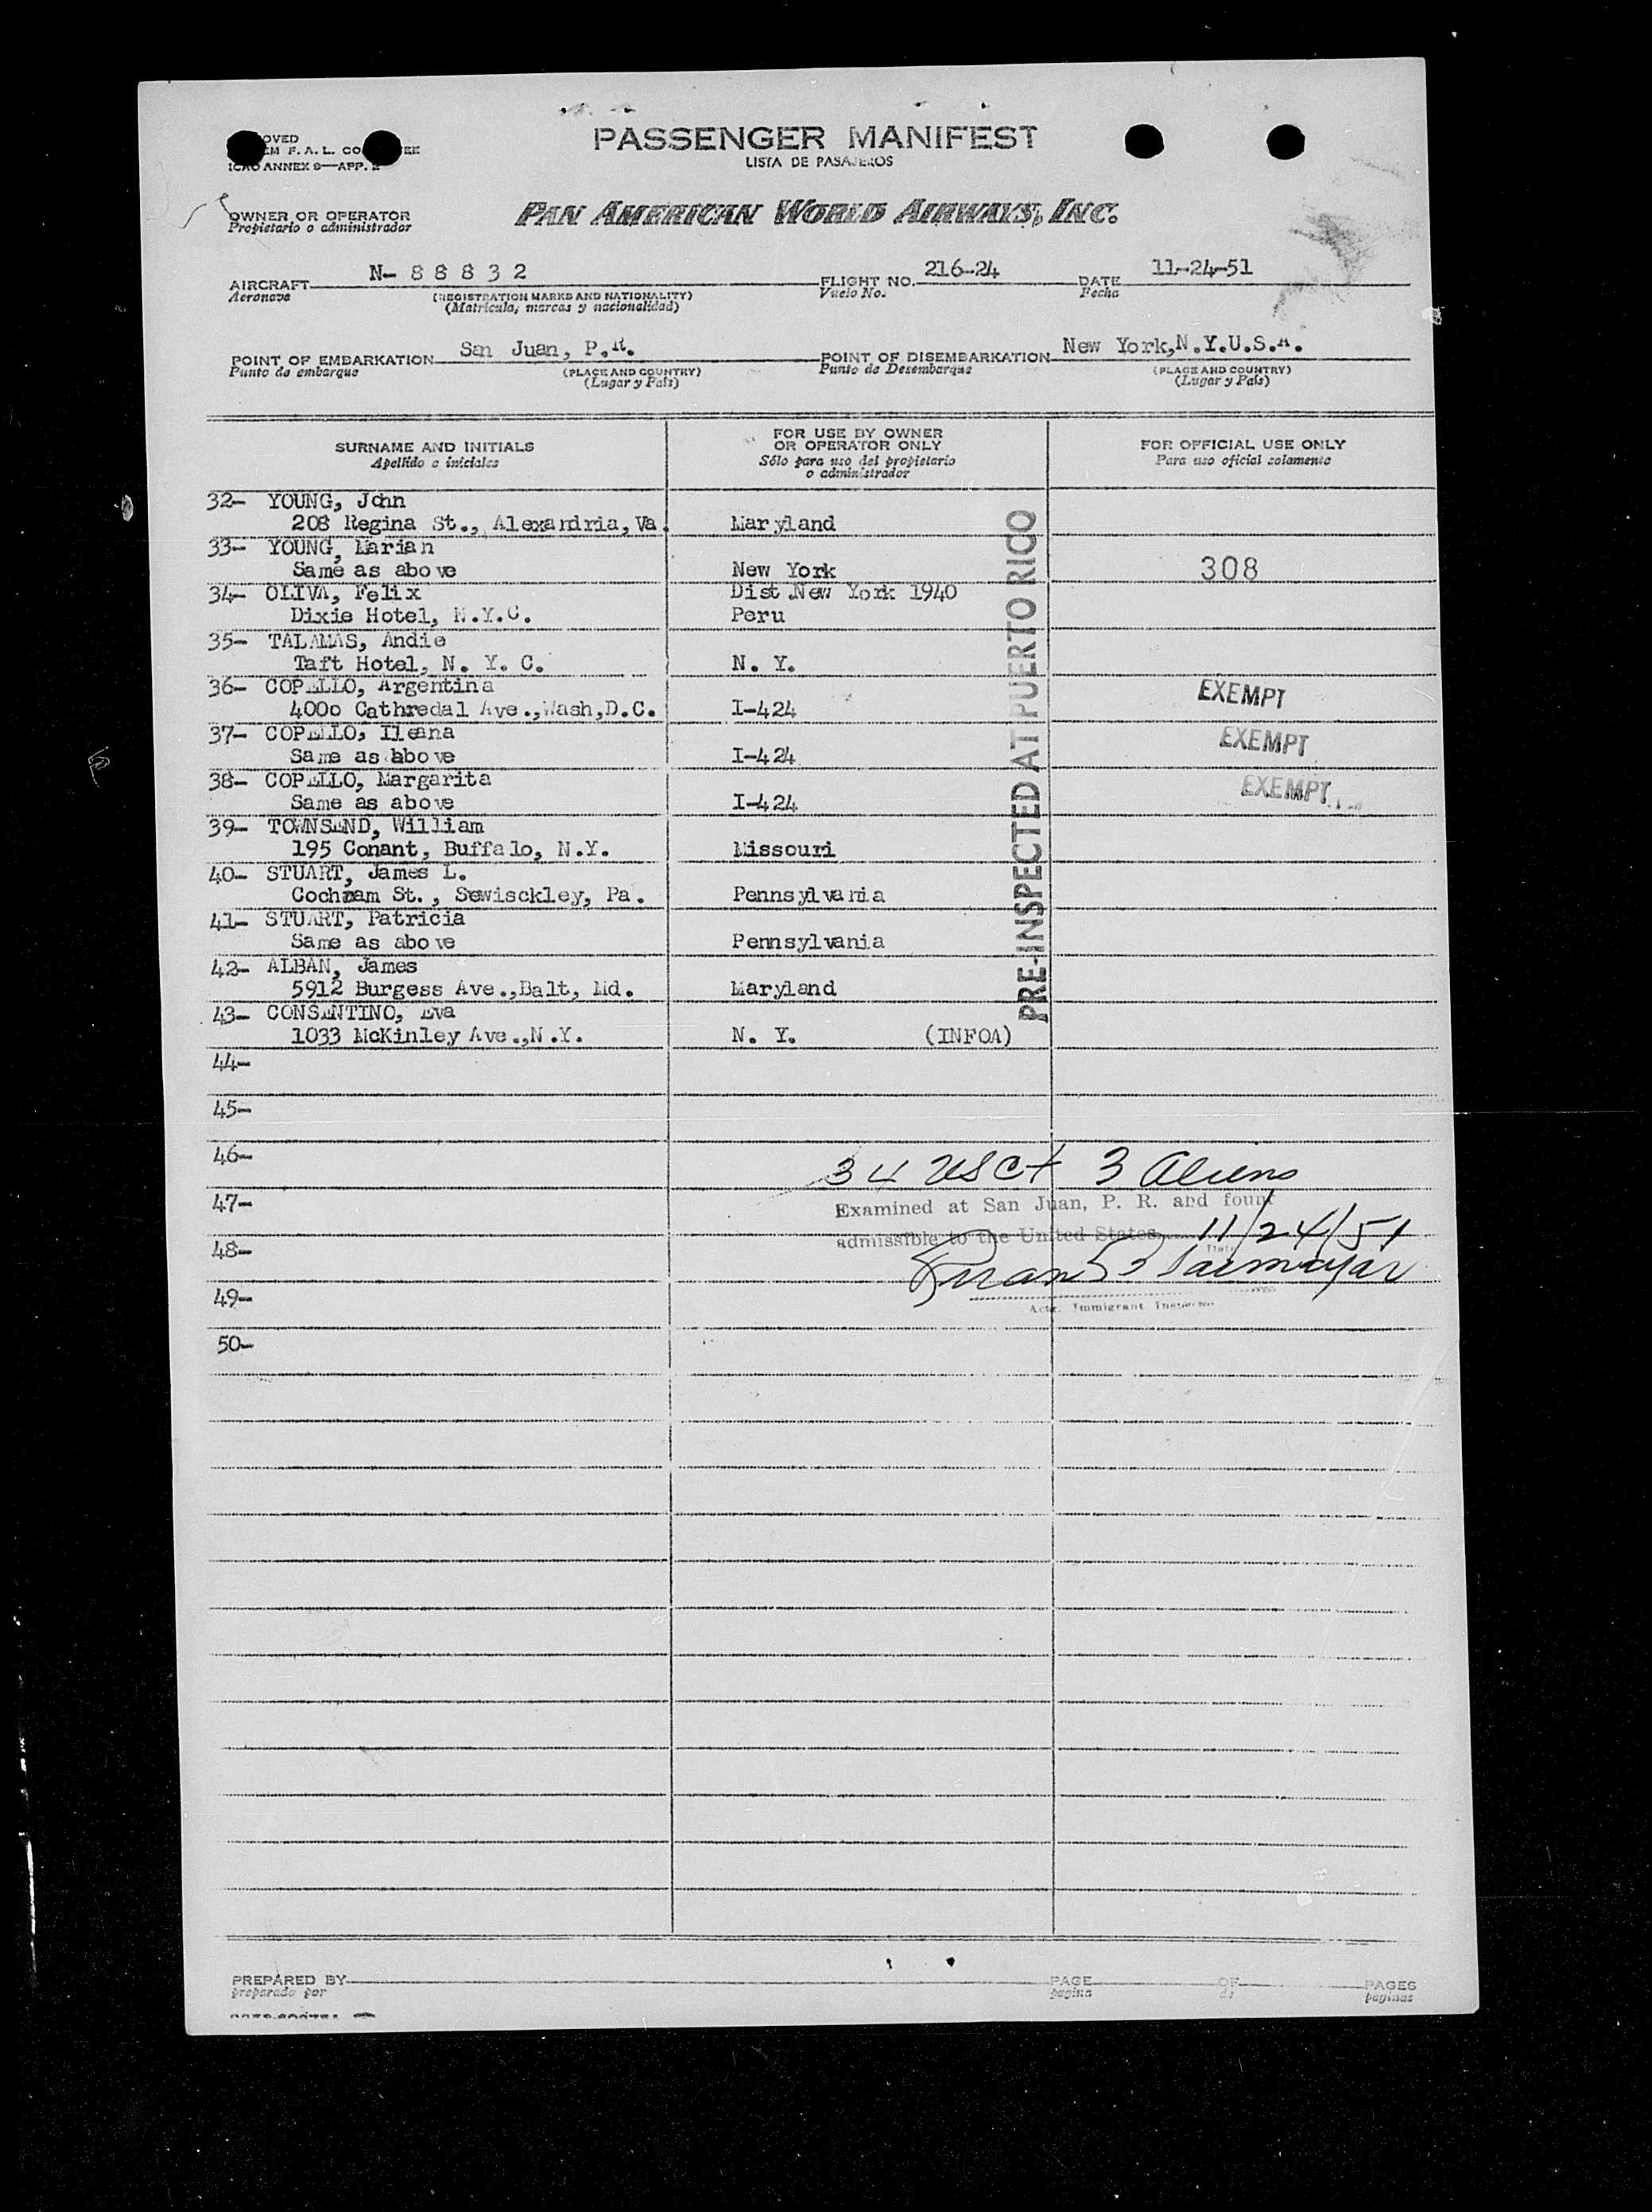 PASSENGER MANIFEST
LISTA DE PASAJEROS
ICAO ANNEX 9—APP.
OWNER OR OPERATOR
Propietario o administrador
PAN AMERICAN WORLD AIRWAYS, INC.
AIRCRAFT N- 8 8 8 3 2
Aeronave
(REGISTRATION MARKS AND NATIONALITY)
(Matricula, marcas y nacionalidad)
FLIGHT NO. 216-24
Vuelo No.
DATE 11-24-51
Fecha
POINT OF EMBARKATION San Juan, P.R.
Punto de embarque
(PLACE AND COUNTRY)
(Lugar y País)
POINT OF DISEMBARKATION New York,N.Y.U.S.A.
Punto de Desembarque
(PLACE AND COUNTRY)
(Lugar y País)
SURNAME AND INITIALS
Apellido e iniciales
FOR USE BY OWNER
OR OPERATOR ONLY
Sólo para uso del propietario
o administrador
FOR OFFICIAL USE ONLY
Para uso oficial solamente
32- YOUNG, John
208 Regina St., Alexandria, Va. Maryland
33- YOUNG, Marian
Same as above New York 308
34- OLIVA, Felix Dist New York 1940
Dixie Hotel, N.Y.C. Peru
35- TALAMAS, Andie
Taft Hotel, N. Y. C. N. Y.
36- COPELLO, Argentina
4000 Cathredal Ave.,Wash,D.C. I-424 EXEMPT
37- COPELLO, Ileana
Same as above I-424 EXEMPT
38- COPELLO, Margarita
Same as above I-424 EXEMPT
39- TOWNSEND, William
195 Conant, Buffalo, N.Y. Missouri
40- STUART, James L.
Cochram St., Sewisckley, Pa. Pennsylvania
41- STUART, Patricia
Same as above Pennsylvania
42- ALBAN, James
5912 Burgess Ave.,Balt, Md. Maryland
43- CONSENTINO, Eva
1033 McKinley Ave.,N.Y. N. Y. (INFOA)
PRE-INSPECTED AT PUERTO RICO
44-
45-
46-
34 USCt 3 Aliens
47-
Examined at San Juan, P. R. and found
admissible to the United States 11/24/51
Date
48-
49-
Actg. Immigrant Inspector
50-
PREPARED BY
preparado por
PAGE OF PAGES
pagina de paginas